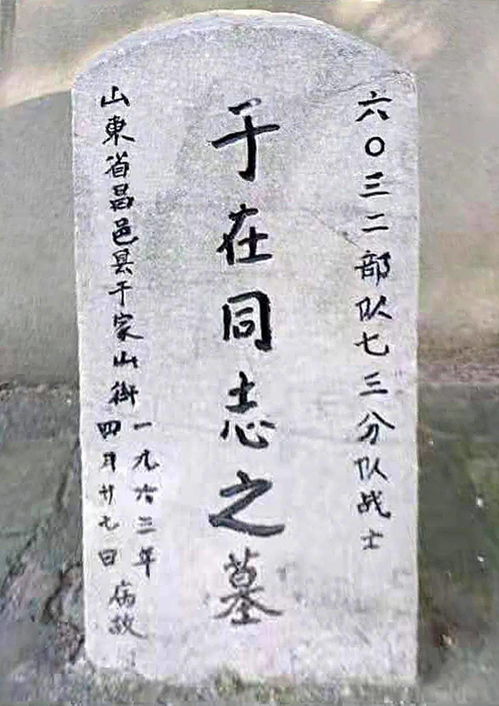 六〇三二部队七三分队战士
于在同志之墓
山東省昌邑县于家山街
一九六三年
四月廿七日
病故